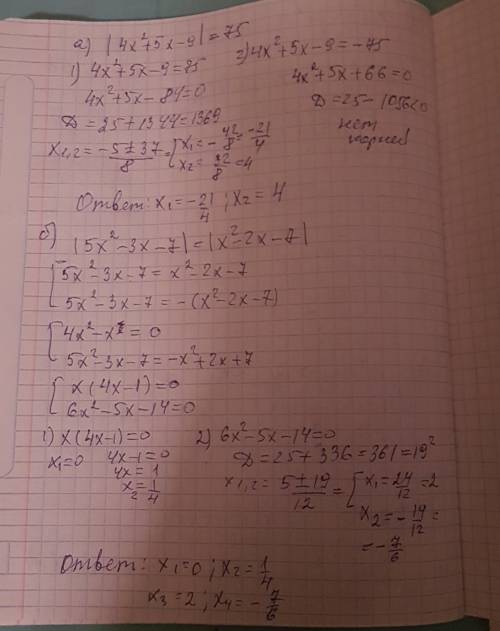 а) |4x²+5x-9|=75
1) 4x²+5x-9=85
4x²+5x-84=0
D=25+1344=1369
x₁,₂=(-5±37)/8=[x₁=-42/8=-21/4
x₂=32/8=4
2) 4x²+5x-9=-75
4x²+5x+66=0
D=25-1056<0
нет
корней
Ответ: x₁=-21/4; x₂=4
б) |5x²-3x-7|=|x²-2x-7|
[5x²-3x-7=x²-2x-7
5x²-3x-7=-(x²-2x-7)
[4x²-x=0
5x²-3x-7=-x²+2x+7
[x(4x-1)=0
6x²-5x-14=0
1) x(4x-1)=0
x₁=0 4x-1=0
4x=1
x₂=1/4
2) 6x²-5x-14=0
D=25+336=361=19²
x₁,₂=(5±19)/12=[x₁=24/12=2
x₂=-14/12=
=-7/6
Ответ: x₁=0; x₂=1/4
x₃=2; x₄=-7/6